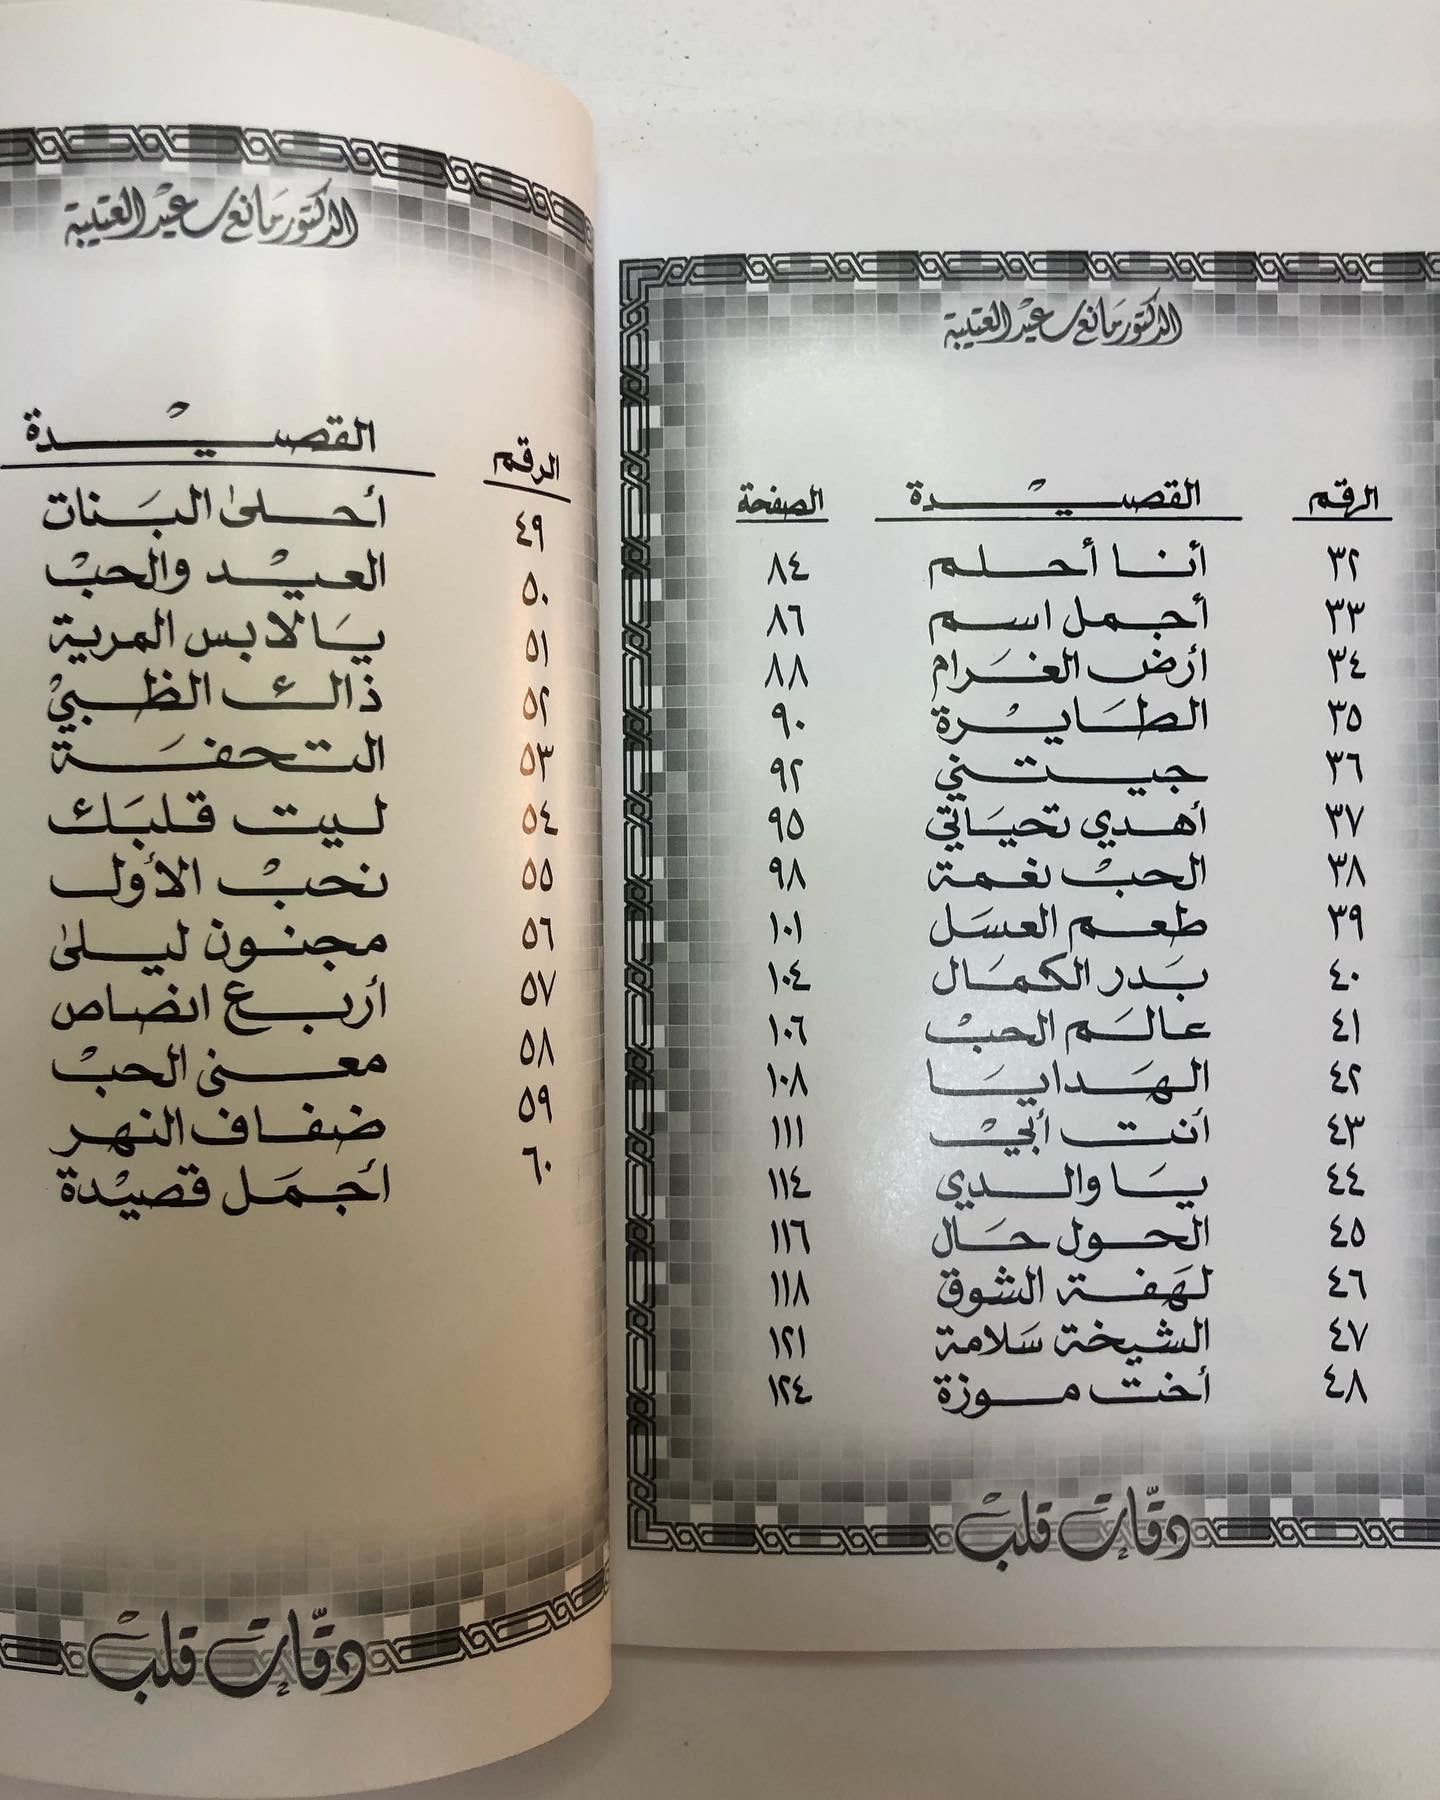 الدكتور مانع سعيد العتيبة
الرقم القصيدة الصفحة
٣٢ أنا أحلم ٨٤
٣٣ أجمل اسم ٨٦
٣٤ أرض الغرام ٨٨
٣٥ الطايرة ٩٠
٣٦ جيتني ٩٢
٣٧ أهدي تحياتي ٩٥
٣٨ الحب نغمة ٩٨
٣٩ طعم العسل ١٠١
٤٠ بدر الكمال ١٠٤
٤١ عالم الحب ١٠٦
٤٢ الهدايا ١٠٨
٤٣ أنت أبي ١١١
٤٤ يا والدي ١١٤
٤٥ الحول حال ١١٦
٤٦ لهفة الشوق ١١٨
٤٧ الشيخة سلامة ١٢١
٤٨ أخت موزة ١٢٤
دقات قلب
الدكتور مانع سعيد العتيبة
الرقم القصيدة
٤٩ أحلى البنات
٥٠ العيد والحب
٥١ يا لابس المرية
٥٢ ذاك الظبي
٥٣ التحفة
٥٤ ليت قلبك
٥٥ نحب الأول
٥٦ مجنون ليلى
٥٧ أربع انصاص
٥٨ معنى الحب
٥٩ ضفاف النهر
٦٠ أجمل قصيدة
دقات قلب